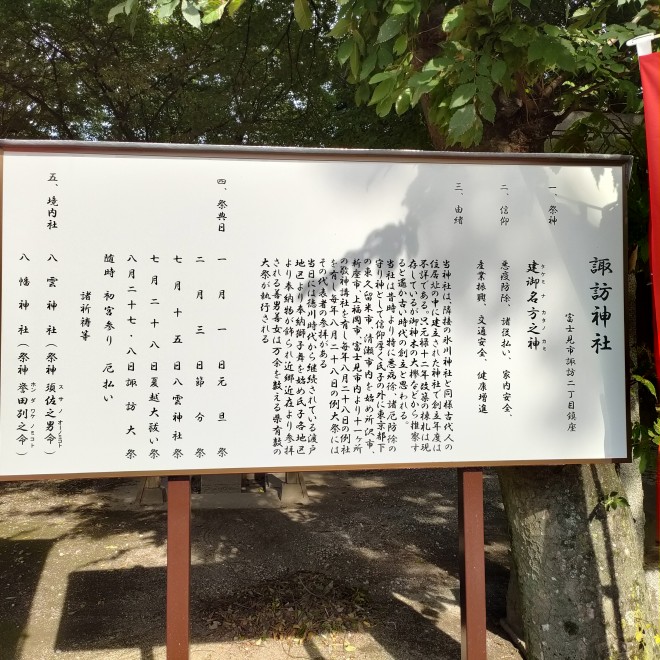 諏訪神社
富士見市諏訪二丁目鎮座
一、祭神
建御名方之神
タケミナカタノカミ
二、信仰
悪疫防除、諸役払い、家内安全、
産業振興、交通安全、健康増進
三、由緒
当神社は、隣接の氷川神社と同様古代人の
住居址の中に建立された神社で創立年度は
不詳である。只元禄十二年改築の棟札は現
存しているが御神木の大欅などから推察す
ると遥か古い時代の創立と思われる。
当社は昔時より特に悪病除、諸厄防除の
守り神として信仰厚く氏子の外に東京都下
の東久留米市、清瀬市内を始め所沢市、
新座市、上福岡市、富士見市内より十一ヶ所
の敬神講社を有し毎年八月二十八日の例社
を有し毎年八月二十八日の例大祭には
その代表者の参拝がある
当日には徳川時代から継続されている渡戸
地区より奉納獅子舞を始め氏子各地区
より奉納物が飾られ近郷近在より参拝
される善男善女は万余を数える県有数の
大祭が執行される
四、祭典日
一月一日元旦祭
二月三日節分祭
七月十五日八雲神社祭
七月二十八日夏越大祓い祭
八月二十七・八日諏訪大祭
随時 初宮参り 厄払い
諸祈祷等
五、境内社
八雲神社(祭神 須佐之男命)
スサノオーノミコト
八幡神社(祭神 誉田別之命)
ホンダワケノミコト